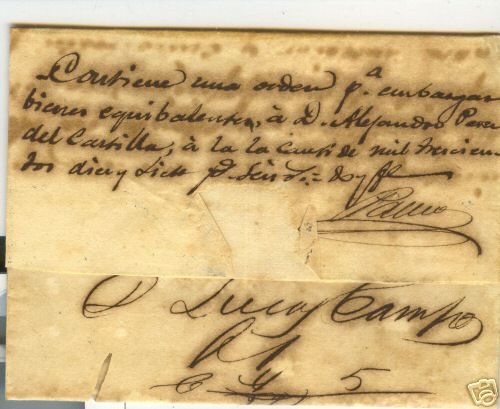 Contiene una orden p.a embargar
bienes equibalentes, à D. Alejandro Perez
del Castilla, à la la cantide mil trecien
tos diez y siete p.s
D Lucas Campo
5